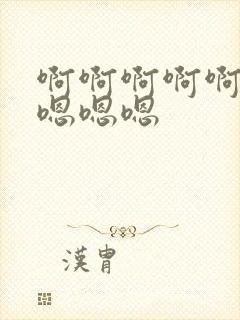 啊啊啊啊啊
嗯嗯嗯
漢胄